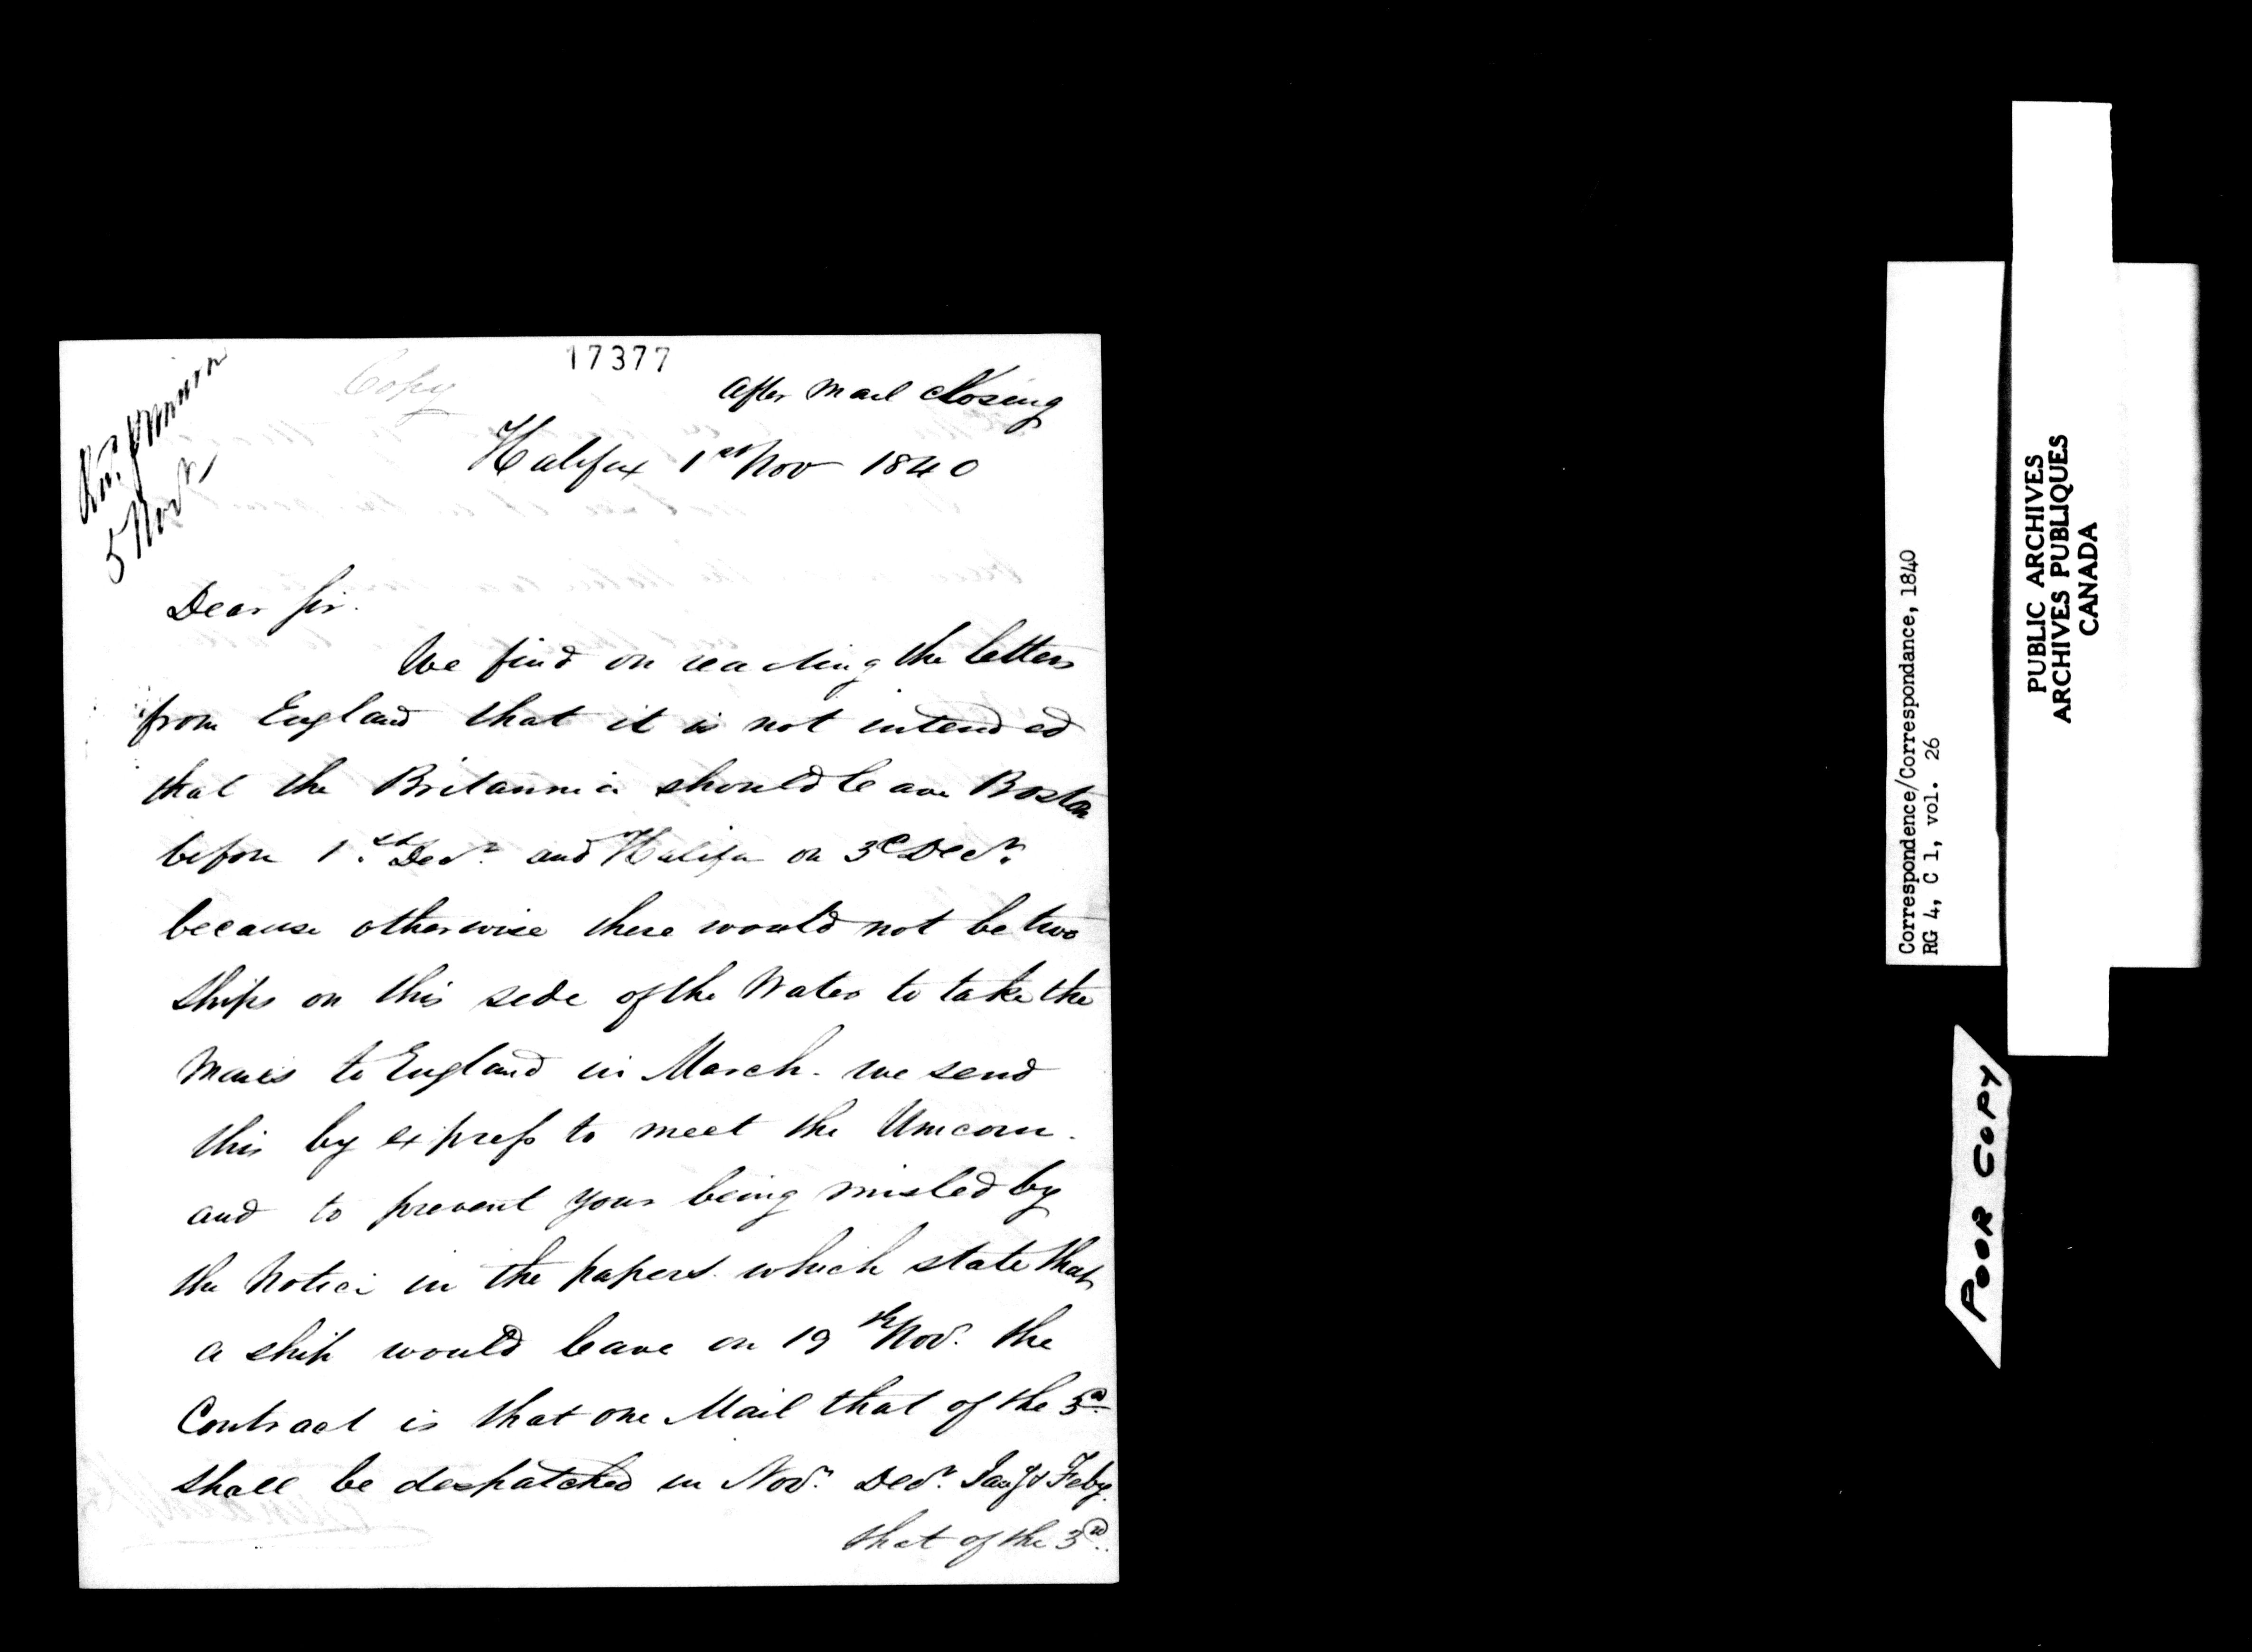 17377
Copy
after mail closing
Halifax 1st Nov 1840
5 Nov
Dear Sir.
We find on reading the letters
from England that it is not intended
that the Britannia should leave Boston
before 1.st Decr. and Halifax on 3d Decr.
because otherwise there would not be two
ships on this side of the Water to take the
Mails to England in March. we send
this by express to meet the Unicorn.
and to prevent your being misled by
the Notice in the papers which state that
a ship would leave on 19th Nov. the
Contract is that one Mail that of the 3d
shall be despatched in Novr. Decr. Jany & Feby.
that of the 3d..
Correspondence/Correspondance, 1840
RG 4, C 1, vol. 26
PUBLIC ARCHIVES
ARCHIVES PUBLIQUES
CANADA
POOR COPY